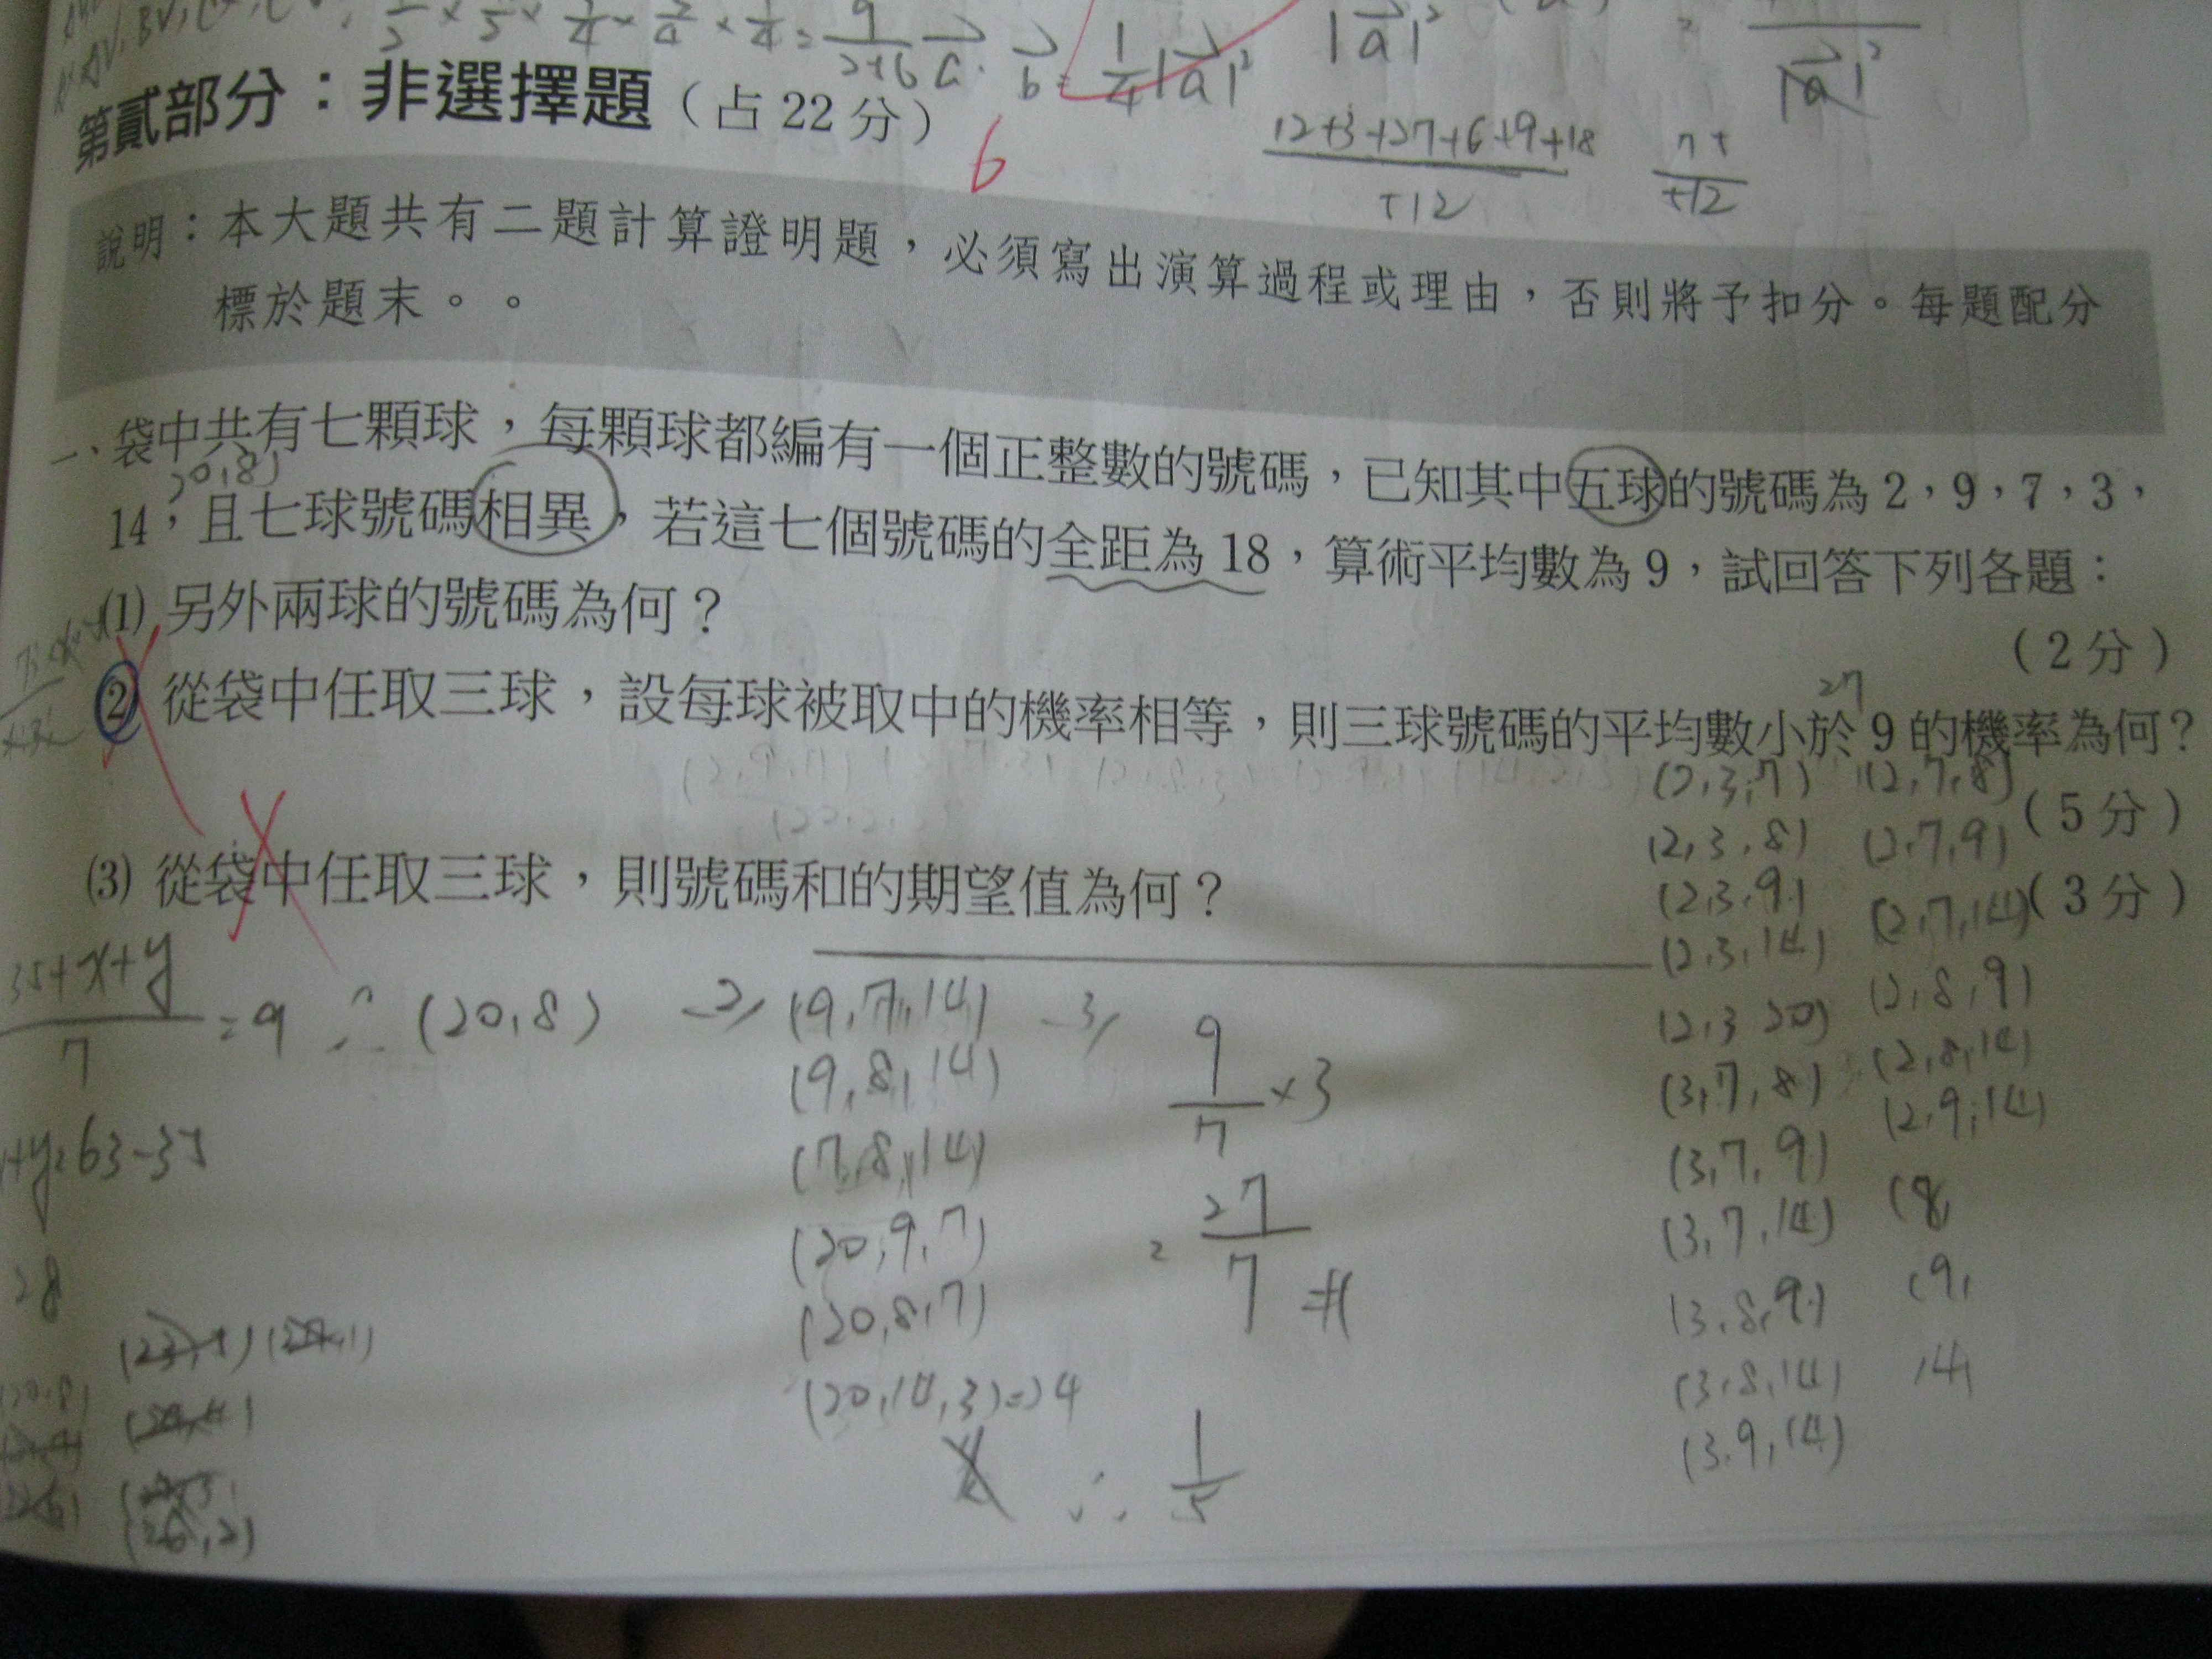 |a|²
|a|²
a · b = 1/4 |a|²
第貳部分：非選擇題（占 22 分）
6
12+3+27+6+9+18
說明：本大題共有二題計算證明題，必須寫出演算過程或理由，否則將予扣分。每題配分
標於題末。。
一、袋中共有七顆球，每顆球都編有一個正整數的號碼，已知其中五球的號碼為 2，9，7，3，
20,8)
14，且七球號碼相異，若這七個號碼的全距為 18，算術平均數為 9，試回答下列各題：
(1) 另外兩球的號碼為何？
（2 分）
27
(2) 從袋中任取三球，設每球被取中的機率相等，則三球號碼的平均數小於 9 的機率為何？
（5 分）
(3) 從袋中任取三球，則號碼和的期望值為何？
（3 分）
(2,3,7) (2,7,8)
(2,3,8) (2,7,9)
(2,3,9) (2,7,14)
(2,3,14) (2,8,9)
(2,3 20) (2,8,14)
(3,7,8) (2,9,14)
(3,7,9) (8,
(3,7,14) (9,
(3,8,9) 14,
(3,8,14)
(3,9,14)
35+x+y
7
=9 ∴ (20,8)
+y=63-35
28
2, (9,7,14)
(9,8,14)
(7,8,14)
(20,9,7)
(20,8,7)
(20,14,3)
∴ 1/5
3, 9/7 ×3
= 27/7 #